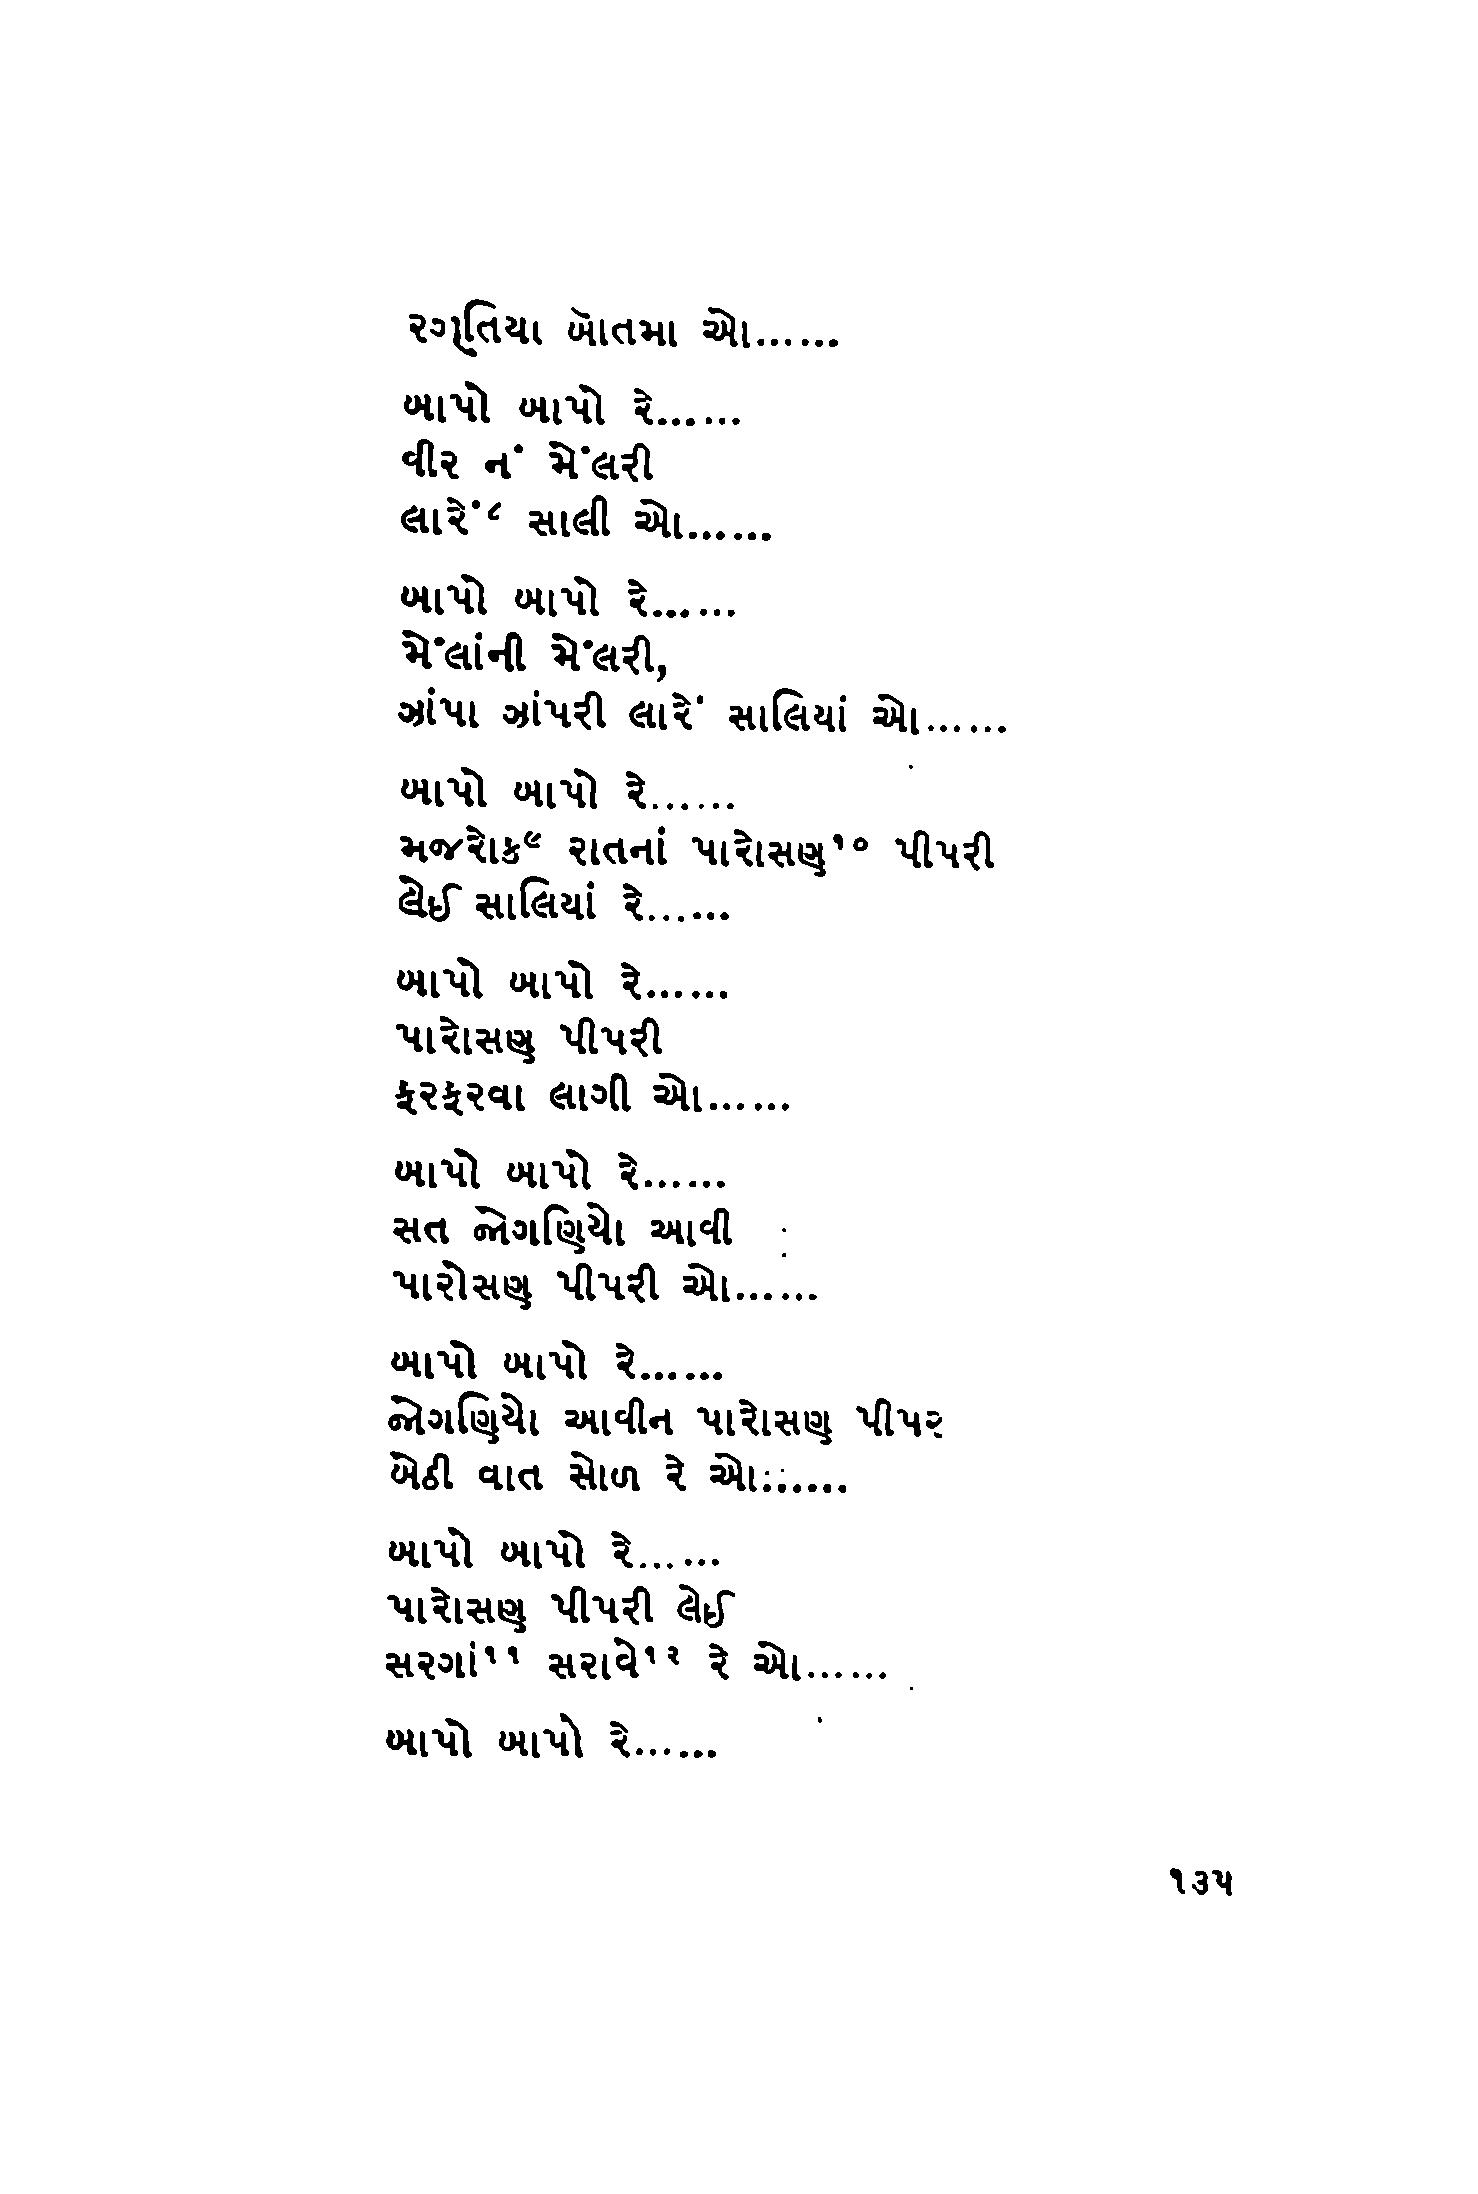 રગૃતિયા ખૅાતમા ઓ......
બાપો બાપો રે......
વીર નં મેંલરી
લારેં૮ સાલી ઓ......
બાપો બાપો રે......
મેંલાંની મેંલરી,
ઝાંપા ઝાંપરી લારેં સાલિયાં ઓ......
બાપો બાપો રે......
મજરોક૯ રાતનાં પારોસણુ૧૦ પીપરી
લેઈ સાલિયાં રે......
બાપો બાપો રે......
પારોસણુ પીપરી
ફરફરવા લાગી ઓ......
બાપો બાપો રે......
સત જોગણિયો આવી
પારોસણુ પીપરી ઓ......
બાપો બાપો રે......
જોગણિયો આવીન પારોસણુ પીપર
બેઠી વાત સોળ રે ઓ......
બાપો બાપો રે......
પારોસણુ પીપરી લેઈ
સરગાં૧૧ સરાવે૧૨ રે ઓ......
બાપો બાપો રે......
૧૩૫